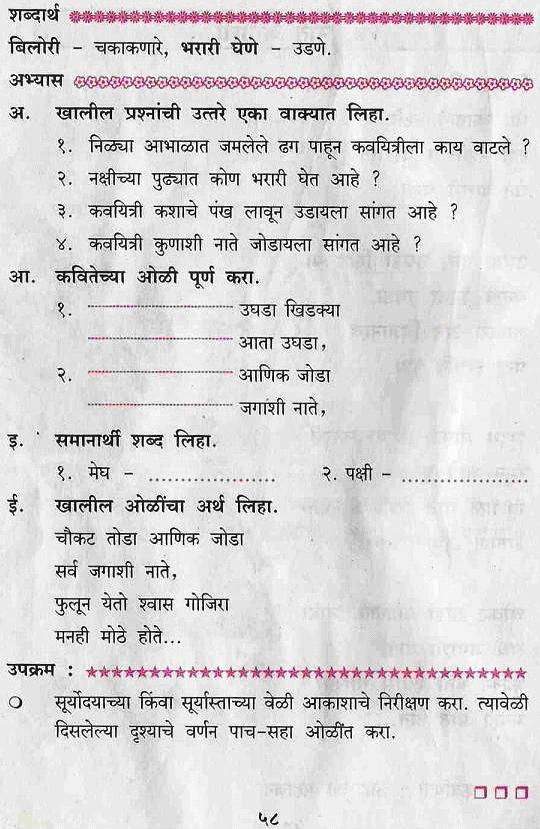 शब्दार्थ
बिलोरी - चकाकणारे, भरारी घेणे - उडणे.
अभ्यास
अ. खालील प्रश्नांची उत्तरे एका वाक्यात लिहा.
१. निळ्या आभाळात जमलेले ढग पाहून कवयित्रीला काय वाटले ?
२. नक्षीच्या पुढ्यात कोण भरारी घेत आहे ?
३. कवयित्री कशाचे पंख लावून उडायला सांगत आहे ?
४. कवयित्री कुणाशी नाते जोडायला सांगत आहे ?
आ. कवितेच्या ओळी पूर्ण करा.
१. ---------------- उघडा खिडक्या
---------------- आता उघडा,
२. ---------------- आणिक जोडा
---------------- जगाशी नाते,
इ. समानार्थी शब्द लिहा.
१. मेघ - ........................ २. पक्षी - ........................
ई. खालील ओळींचा अर्थ लिहा.
चौकट तोडा आणिक जोडा
सर्व जगाशी नाते,
फुलून येतो श्वास गोजिरा
मनही मोठे होते...
उपक्रम :
सूर्योदयाच्या किंवा सूर्यास्ताच्या वेळी आकाशाचे निरीक्षण करा. त्यावेळी
दिसलेल्या दृश्याचे वर्णन पाच-सहा ओळींत करा.
५८